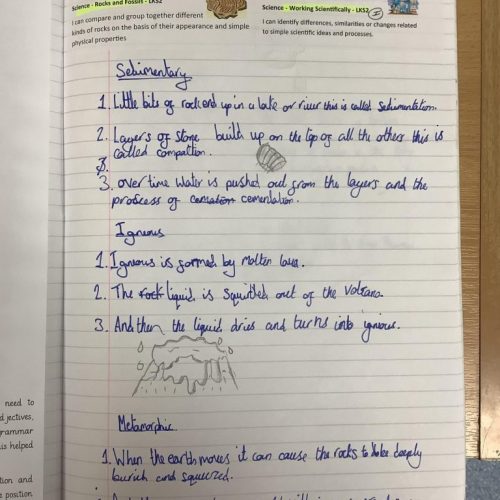 Science - Rocks and Fossils - LKS2
I can compare and group together different
kinds of rocks on the basis of their appearance and simple
physical properties
Science - Working Scientifically - LKS2
I can identify differences, similarities or changes related
to simple scientific ideas and processes.
Sedimentary
1. Little bits of rock end up in a lake or river this is called Sedimentation.
2. Layers of stone build up on the top of all the others this is
called compaction.
3. over time water is pushed out from the layers and the
process of cementation.
Igneous
1. Igneous is formed by molten lava.
2. The rock liquid is squirtted out of the volcano.
3. And then the liquid dries and turns into igneous.
Metamorphic.
1. When the earth moves it can cause the rocks to be deeply
buried and squeezed.
need to
djectives,
grammar
is helped
tion and
position